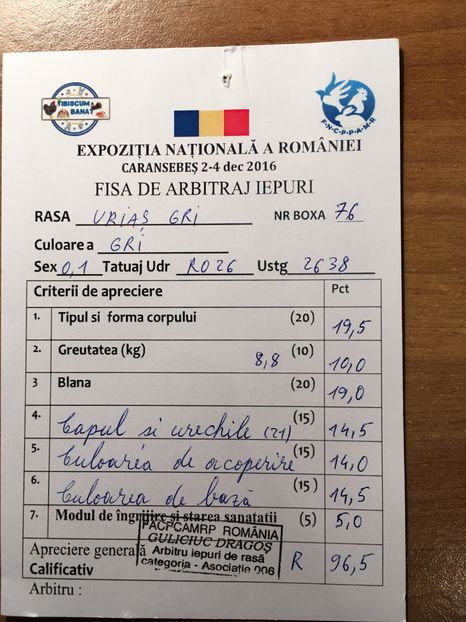 TIBISCUM
BANAT
F-N-C-P-P-A-M-R
EXPOZIȚIA NAȚIONALĂ A ROMÂNIEI
CARANSEBEȘ 2-4 dec 2016
FISA DE ARBITRAJ IEPURI
RASA URIAS GRI NR BOXA 76
Culoare a GRI
Sex 0,1 Tatuaj Udr RO26 Ustg 2638
Criterii de apreciere Pct
1. Tipul si forma corpului (20) 19,5
2. Greutatea (kg) 8,8 (10) 10,0
3 Blana (20) 19,0
4. Capul si urechile (21) (15) 14,5
5. Culoarea de acoperire (15) 14,0
6. Culoarea de bază (15) 14,5
7. Modul de îngrijire si starea sanatatii (5) 5,0
FACPCAMRP ROMÂNIA
GULICIUC DRAGOȘ
Arbitru iepuri de rasă
categoria - Asociație 006
Apreciere generală R 96,5
Calificativ
Arbitru :